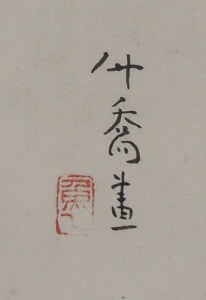 竹喬畫